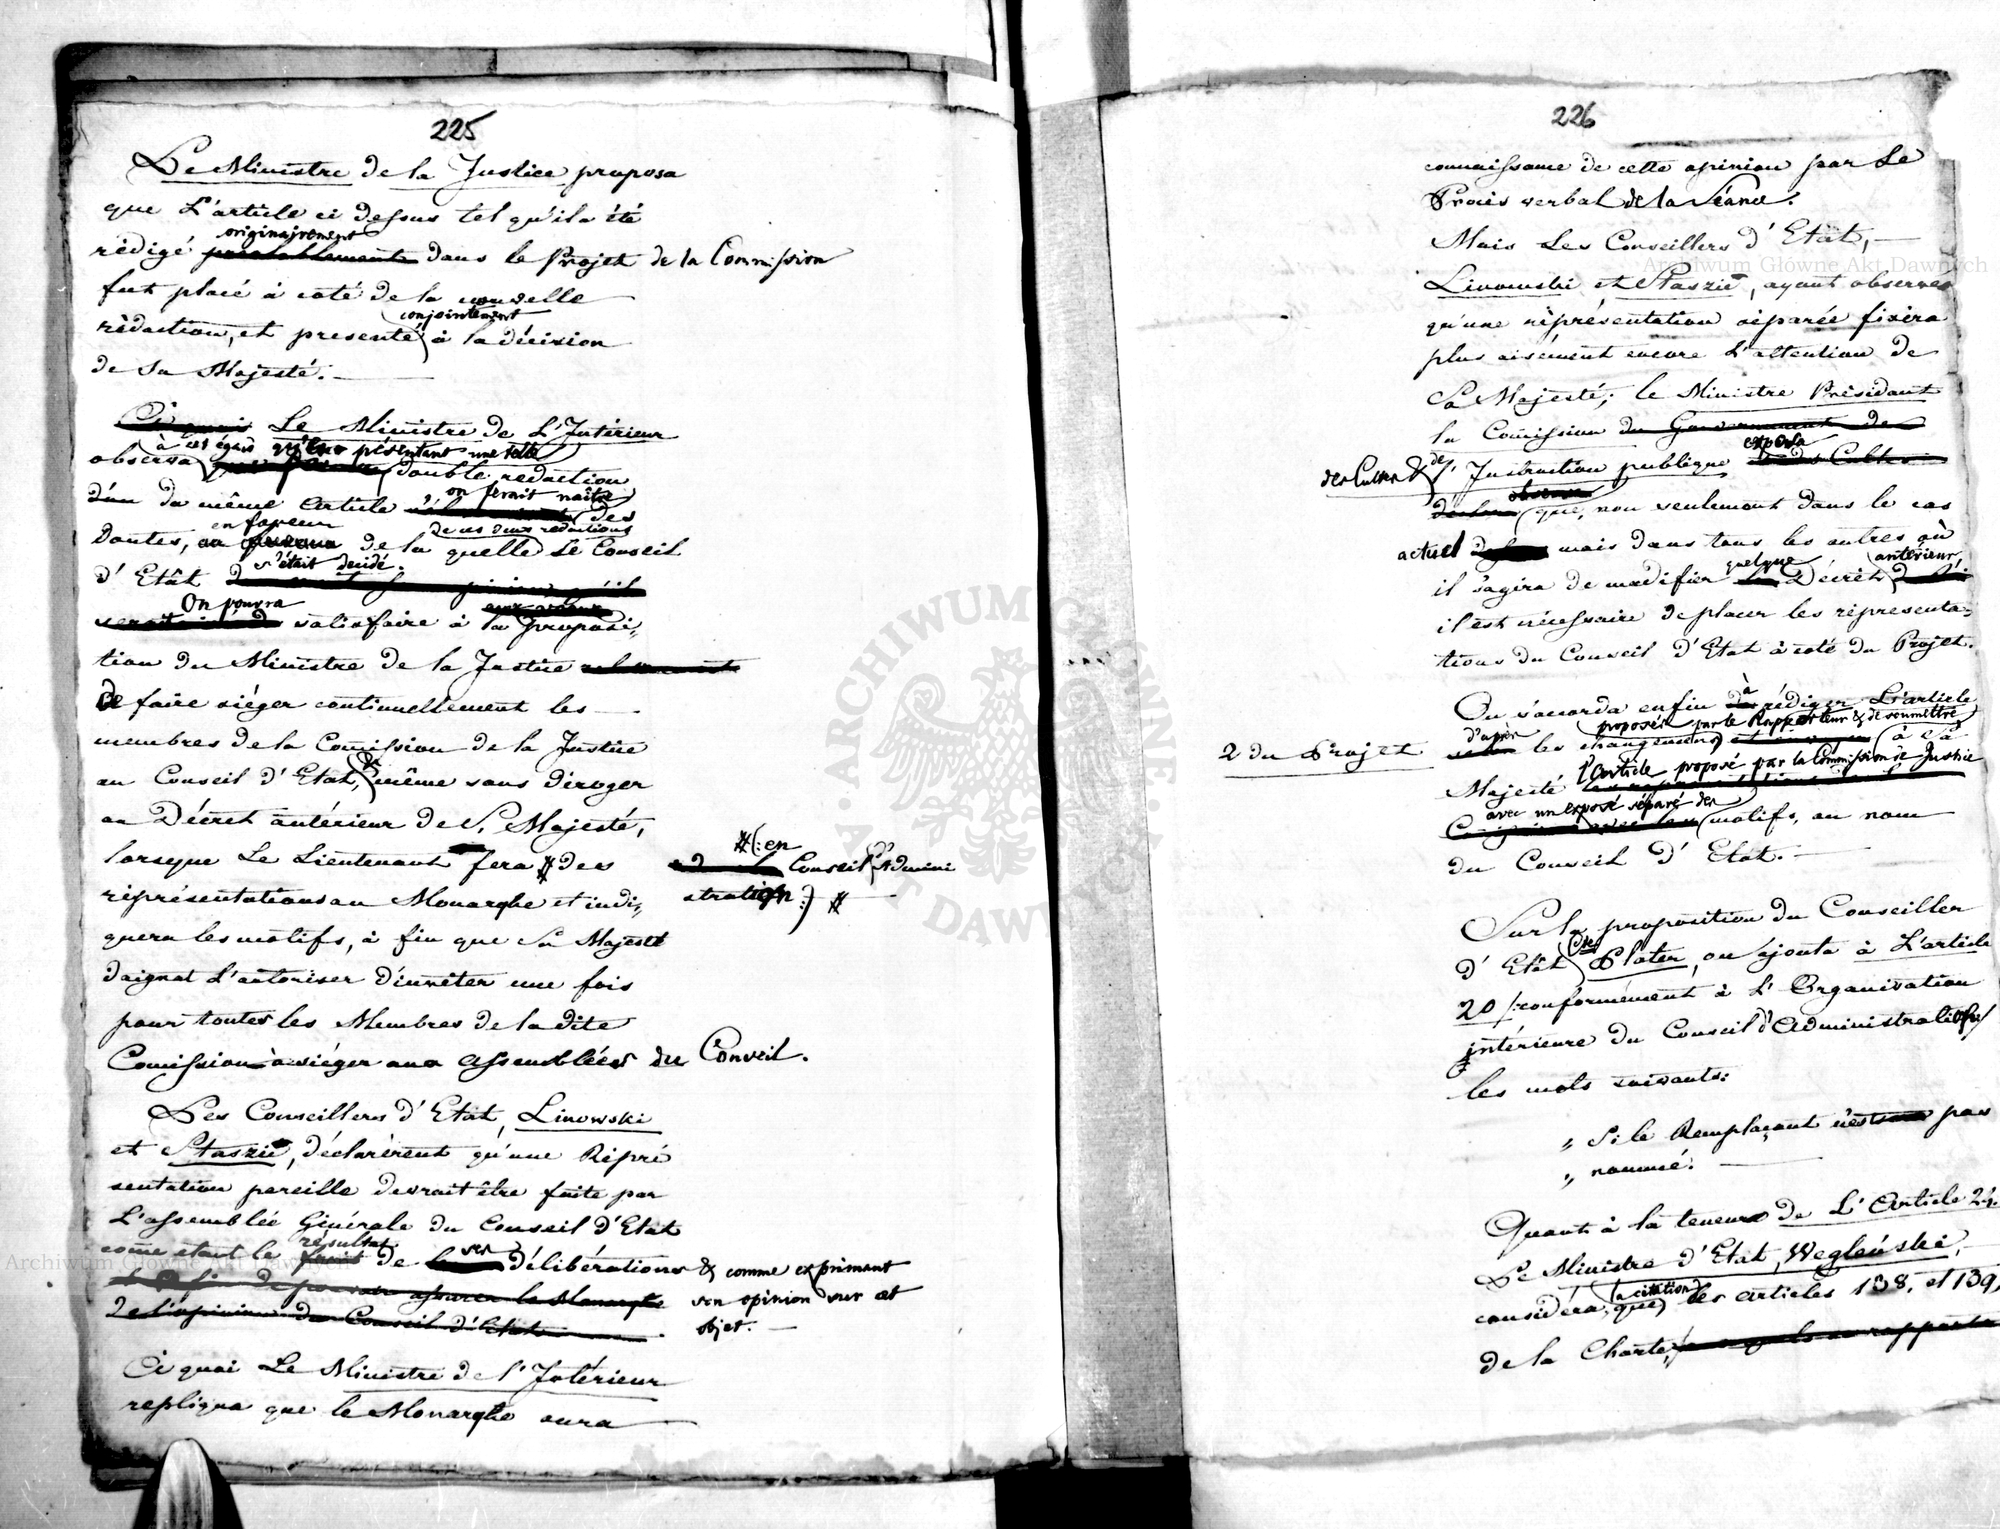 225
Le Ministre de la Justice proposa
que L'article ci dessus tel qu'il a été
originairement
rédigé dans le Projet de la Commission
fut placé à coté de la nouvelle
conjointement
rédaction, et presenté à la décision
de Sa Majesté.
Le Ministre de L'Intérieur
à cet égard qu'en présentant une telle
observa double redaction
on ferait naître
d'un du même article des
en faveur de ces deux redactions
Doutes, de la quelle Le Conseil
s'était decidé.
d'Etât
On pourra
satisfaire à la proposi,
tion du Ministre de la Justice
de faire siéger continuellement les
membres de la Comission de la Justice
au Conseil d'Etat, même sans déroger
au Décret antérieur de S. Majesté,
lorsque Le Lieutenant fera # des
#(: en
Conseil d'Admini
stration :) #
réprésentations au Monarque et indi,
quera les motifs, à fin que Sa Majesté
daignat L'autoriser d'inviter une fois
pour toutes les Membres de la dite
Comission à siéger aux assemblées du Conseil.
Les Conseillers d'Etat, Linowski
et Staszic, déclarèrent qu'une Répré
sentation pareille devrait être faite par
L'assemblée Générale du Conseil d'Etat
résultat ses
come etant le de délibérations & comme exprimant
son opinion sur cet
objet.
Ci quoi Le Ministre de l'Intérieur
repliqua que le Monarque aura
226
connaissance de cette opinion par Le
Procès verbal de la Séance.
Mais Les Conseillers d'Etât,
Linowski et Staszic, ayant observés
qu'une réprésentation séparée fixera
plus aisément encore L'attention de
Sa Majesté; le Ministre Présidant
la Comission du Gouvernement de
exposa
des Cultes & de l'Instruction publique
que, non seulement dans le cas
actuel mais dans tous les autres où
quelque antérieur
il s'agira de modifier Décret
il est nécessaire de placer les réprésenta,
tions du Conseil d'Etat à coté du Projet.
à
On s'accorda enfin rédiger L'article
d'après proposés par le Rapporteur & de soumettre
2 du Projet les changements à Sa
l'article proposé par la Commission de Justice
Majesté
avec un exposé séparé des
motifs, au nom
du Conseil d'Etat.
Sur la proposition du Conseiller
d'Etât Cte Plater, on ajouta à L'article
20 /: conformément à L'Organisation
intérieure du Conseil d'Administration :/
les mots suivants:
„ Si le Remplaçant n'est pas
„ nommé.
Quant à la teneur de L'Article 24.
Le Ministre d'Etat, Węgleński,
la citation
considéra, que des articles 138, et 139,
de la Charte,
Archiwum Główne Akt Dawnych
Archiwum Główne Akt Dawnych
ARCHIWUM GŁÓWNE AKT DAWNYCH